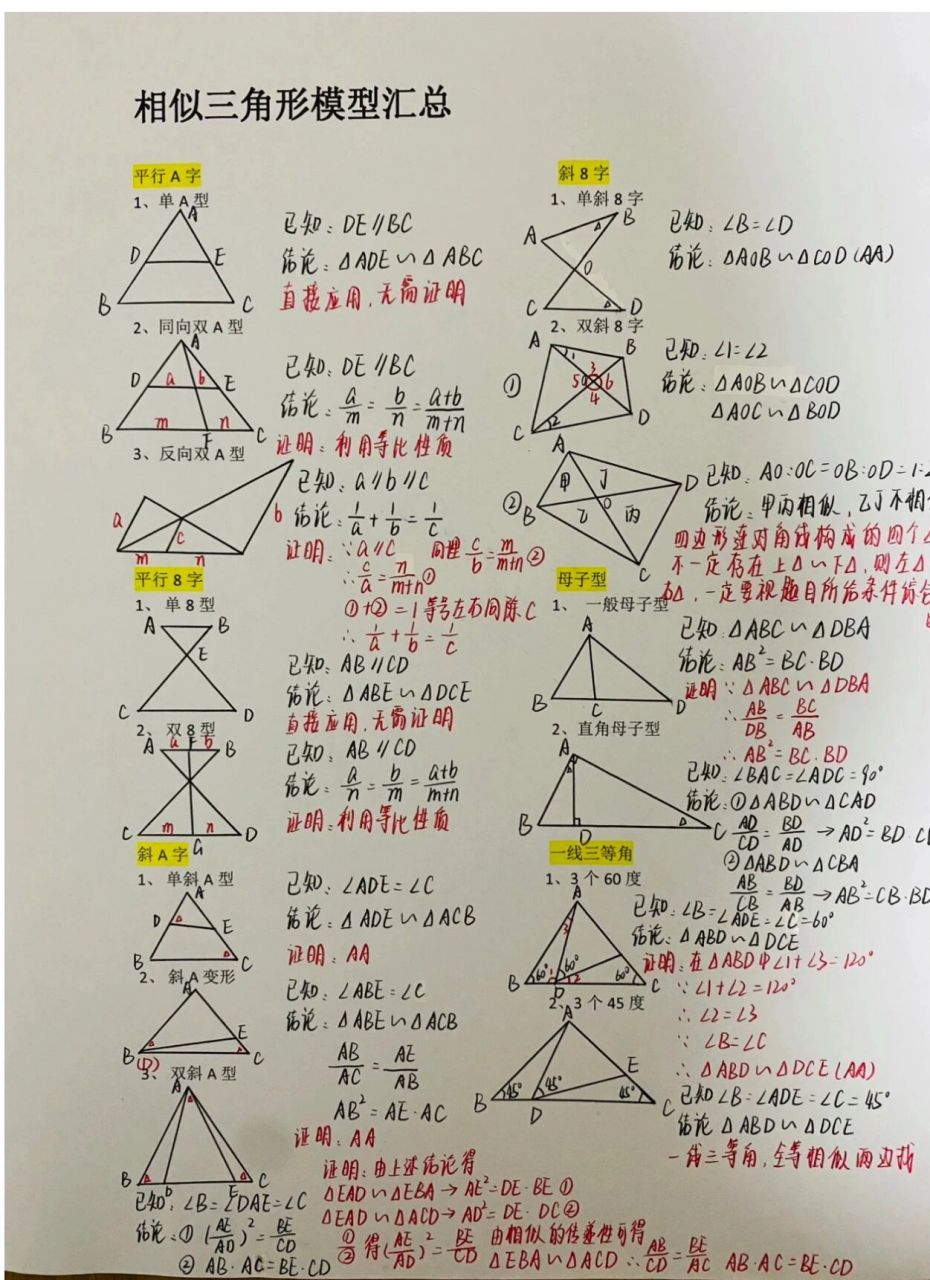 相似三角形模型汇总
平行A字
1、单A型
A
D
E
B
C
已知：DE∥BC
结论：△ADE∽△ABC
直接应用，无需证明
2、同向双A型
A
D a b E
B m F n C
已知：DE∥BC
结论：a/m = b/n = (a+b)/(m+n)
证明：利用等比性质
3、反向双A型
a c b
m n
已知：a∥b∥c
结论：1/a + 1/b = 1/c
证明：∵a∥c 同理 c/b = m/(m+n) ②
∴ c/a = n/(m+n) ①
①+②=1 等号左右同除C
∴ 1/a + 1/b = 1/c
平行8字
1、单8型
A B
E
C D
已知：AB∥CD
结论：△ABE∽△DCE
直接应用，无需证明
2、双8型
A a F b B
C m n D
G
已知：AB∥CD
结论：a/n = b/m = (a+b)/(m+n)
证明：利用等比性质
斜A字
1、单斜A型
A
D E
B C
已知：∠ADE=∠C
结论：△ADE∽△ACB
证明：AA
2、斜A变形
A
E
B C
(D)
已知：∠ABE=∠C
结论：△ABE∽△ACB
AB/AC = AE/AB
AB²=AE·AC
证明：AA
3、双斜A型
A
B D E C
已知：∠B=∠DAE=∠C
结论：①(AE/AD)²=BE/CD
②AB·AC=BE·CD
证明：由上述结论得
△EAD∽△EBA→AE²=DE·BE①
△EAD∽△ACD→AD²=DE·DC②
①/② 得(AE/AD)²=BE/CD 由相似的传递性可得
△EBA∽△ACD ∴AB/CD=BE/AC AB·AC=BE·CD
斜8字
1、单斜8字
B
A
O
C D
已知：∠B=∠D
结论：△AOB∽△COD(AA)
2、双斜8字
①
A B
1 3
5 O 6
4
2
C D
已知：∠1=∠2
结论：△AOB∽△COD
△AOC∽△BOD
②
A
甲 丁 D
B 乙 O 丙
C
已知：AO:OC=OB:OD=1:
结论：甲丙相似，乙丁不相
四边形连对角线构成的四个△
不一定存在上△∽下△，则左△
右△，一定要视题目所给条件综合
母子型
1、一般母子型
A
B C D
已知△ABC∽△DBA
结论：AB²=BC·BD
证明∵△ABC∽△DBA
∴ AB/DB = BC/AB
∴ AB²=BC·BD
2、直角母子型
A
B D C
已知：∠BAC=∠ADC=90°
结论：①△ABD∽△CAD
AD/CD = BD/AD → AD²=BD·
②△ABD∽△CBA
AB/CB = BD/AB → AB²=CB·BD
一线三等角
1、3个60度
A
3
60° 1 60° 2 60°
B D C
已知：∠B=∠ADE=∠C=60°
结论：△ABD∽△DCE
证明：在△ABD中∠1+∠3=120°
∵∠1+∠2=120°
∴∠2=∠3
∵∠B=∠C
∴△ABD∽△DCE(AA)
2、3个45度
A
E
45° 45° 45°
B D C
已知∠B=∠ADE=∠C=45°
结论△ABD∽△DCE
一线三等角，全等相似两边找